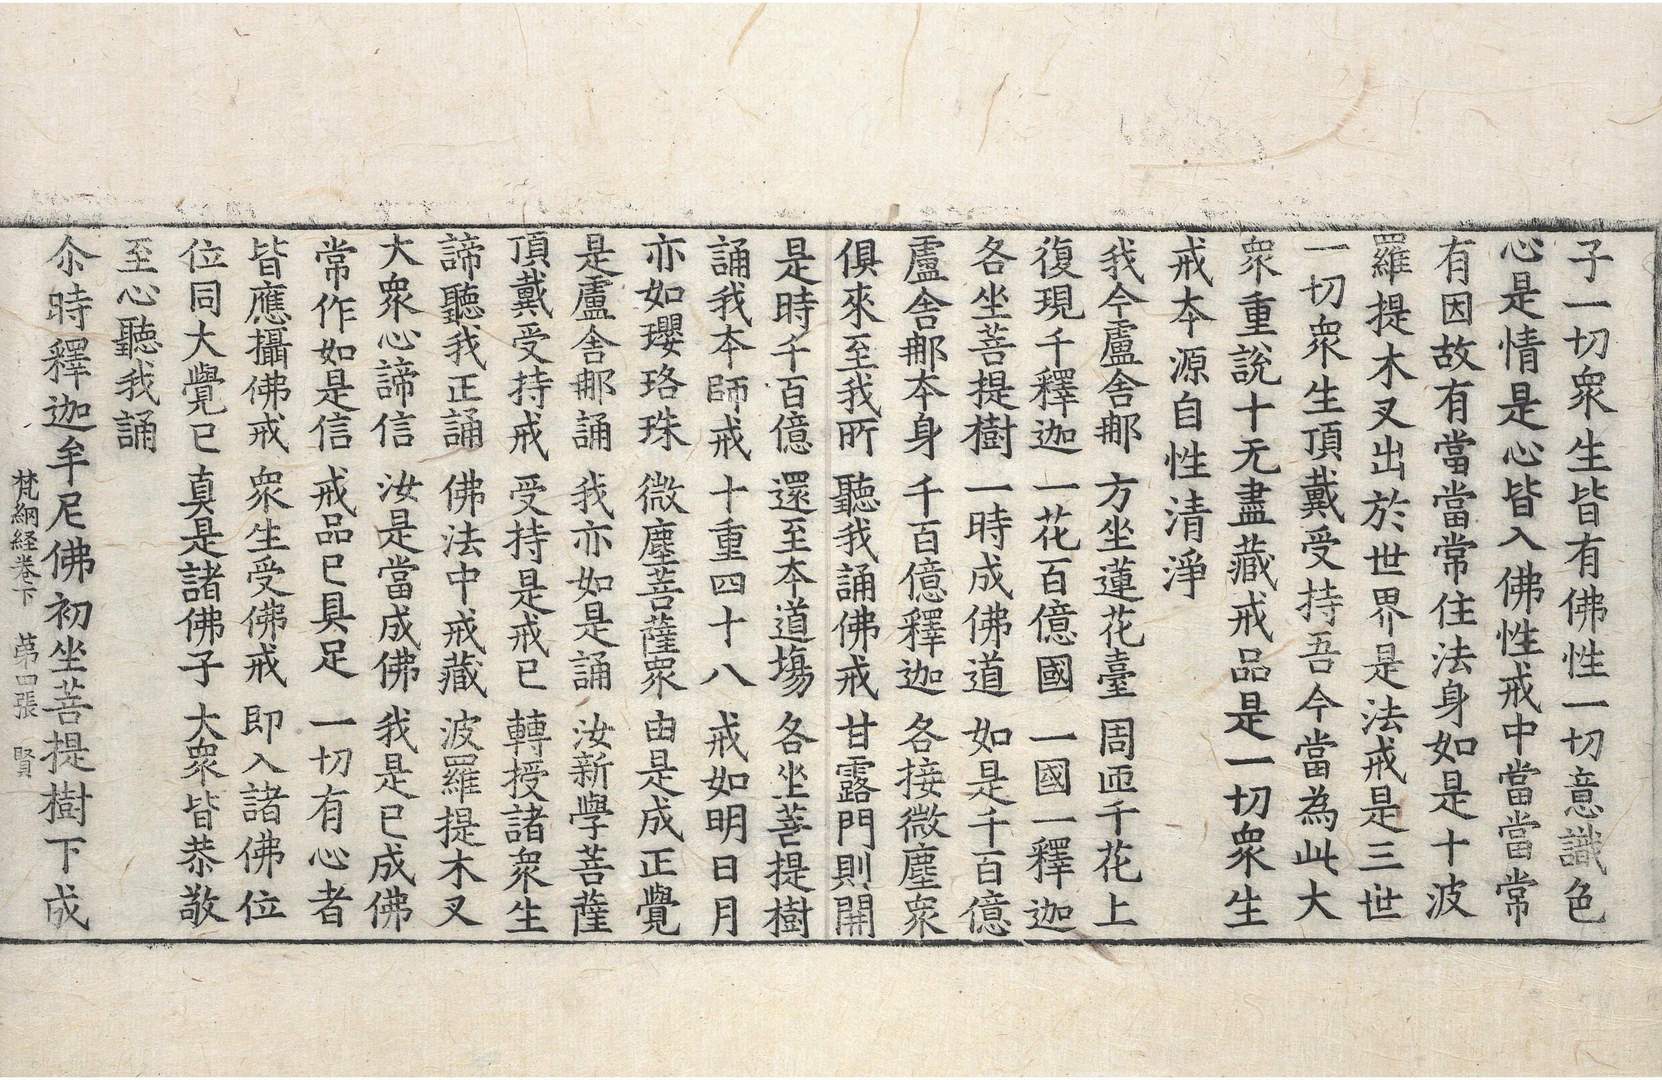 子一切衆生皆有佛性一切意識色
心是情是心皆入佛性戒中當當常
有因故有當當常住法身如是十波
羅提木叉出於世界是法戒是三世
一切衆生頂戴受持吾今當為此大
衆重說十无盡藏戒品是一切衆生
戒本源自性清淨
我今盧舍那 方坐蓮花臺 周匝千花上
復現千釋迦 一花百億國 一國一釋迦
各坐菩提樹 一時成佛道 如是千百億
盧舍那本身 千百億釋迦 各接微塵衆
俱來至我所 聽我誦佛戒 甘露門則開
是時千百億 還至本道場 各坐菩提樹
誦我本師戒 十重四十八 戒如明日月
亦如瓔珞珠 微塵菩薩衆 由是成正覺
是盧舍那誦 我亦如是誦 汝新學菩薩
頂戴受持戒 受持是戒已 轉授諸衆生
諦聽我正誦 佛法中戒藏 波羅提木叉
大衆心諦信 汝是當成佛 我是已成佛
常作如是信 戒品已具足 一切有心者
皆應攝佛戒 衆生受佛戒 即入諸佛位
位同大覺已 真是諸佛子 大衆皆恭敬
至心聽我誦
尒時釋迦牟尼佛初坐菩提樹下成
梵網経卷下 第四張 賢